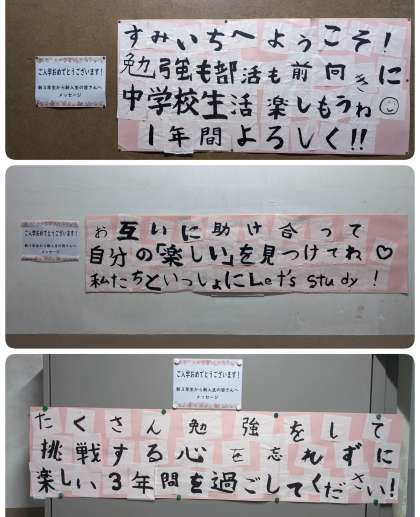 ご入学おめでとうございます!
新3年生から新入生の皆さんへ
メッセージ
すみいちへようこそ!
勉強も部活も前向きに
中学校生活楽しもうね☺
1年間よろしく!!
ご入学おめでとうございます!
新3年生から新入生の皆さんへ
メッセージ
お互いに助け合って
自分の「楽しい」を見つけてね♡
私たちといっしょにLet's study!
ご入学おめでとうございます!
新3年生から新入生の皆さんへ
メッセージ
たくさん勉強をして
挑戦する心を忘れずに
楽しい3年間を過ごしてください!